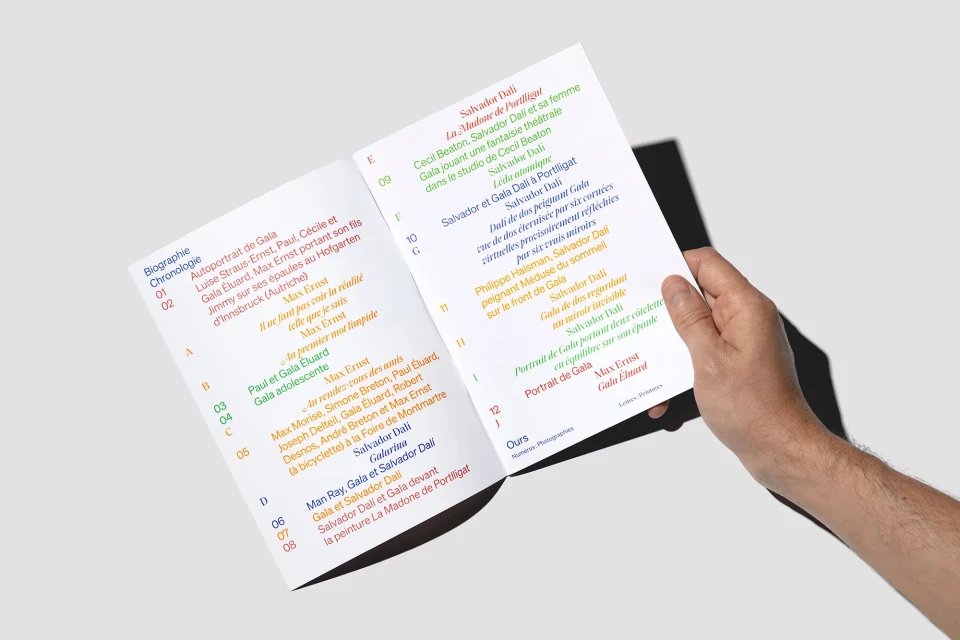 Biographie
Chronologie
01 Autoportrait de Gala
02 Luise Straus-Ernst, Paul, Cécile et
Gala Éluard, Max Ernst portant son fils
Jimmy sur ses épaules au Hofgarten
d'Innsbruck (Autriche)
Max Ernst
A Il ne faut pas voir la réalité
telle que je suis
Max Ernst
B Au premier mot limpide
03 Paul et Gala Éluard
04 Gala adolescente
Max Ernst
C Au rendez-vous des amis
05 Max Morise, Simone Breton, Paul Éluard,
Joseph Delteil, Gala Éluard, Robert
Desnos, André Breton et Max Ernst
(à bicyclette) à la Foire de Montmartre
Salvador Dalí
D Galarina
06 Man Ray, Gala et Salvador Dalí
07 Gala et Salvador Dalí
08 Salvador Dalí et Gala devant
la peinture La Madone de Portlligat
Salvador Dalí
E La Madone de Portlligat
09 Cecil Beaton, Salvador Dalí et sa femme
Gala jouant une fantaisie théâtrale
dans le studio de Cecil Beaton
Salvador Dalí
F Léda atomique
10 Salvador et Gala Dalí à Portlligat
Salvador Dalí
G Dalí de dos peignant Gala
vue de dos éternisée par six cornées
virtuelles provisoirement réfléchies
par six vrais miroirs
11 Philippe Halsman, Salvador Dalí
peignant Méduse du sommeil
sur le front de Gala
Salvador Dalí
H Gala de dos regardant
un miroir invisible
Salvador Dalí
I Portrait de Gala portant deux côtelettes
en équilibre sur son épaule
12 Portrait de Gala
Max Ernst
J Gala Éluard
Ours
Numéros: Photographies
Lettres: Peintures